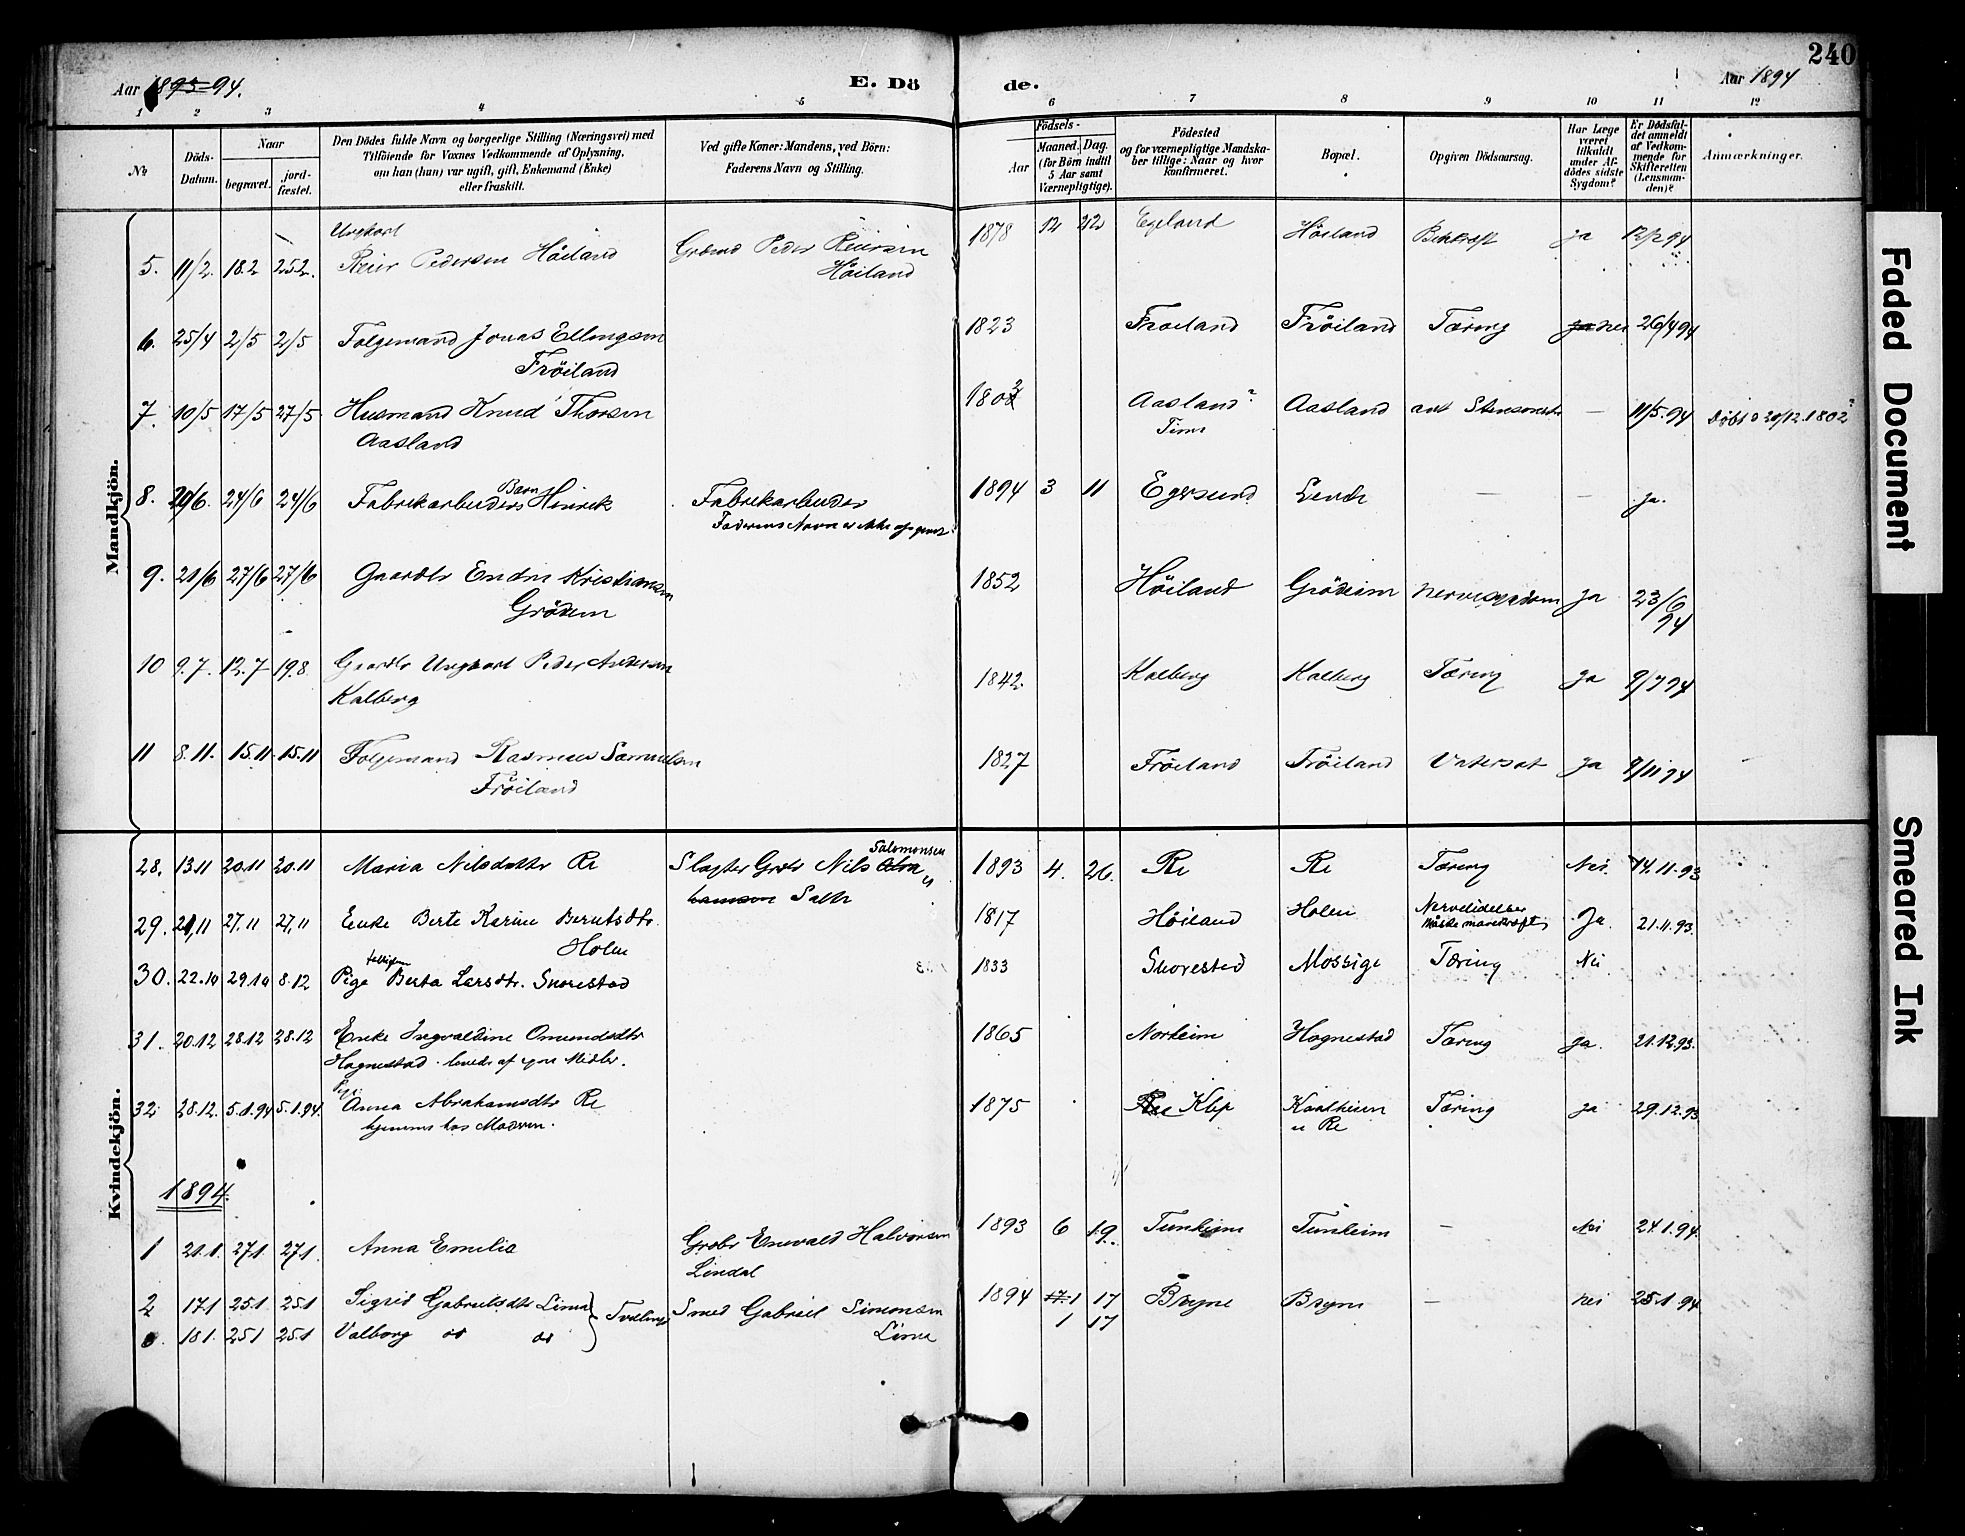 240
Aar 1893-94.
E. Dö
de.
Aar 1894
1 2 3 4 5 6 7 8 9 10 11 12
No
Döds-Datum.
Naar
begravet.
jord-fæstet.
Den Dödes fulde Navn og borgerlige Stilling (Næringsvei) med
Tilföiende for Voxnes Vedkommende af Oplysning,
om han (hun) var ugift, gift, Enkemand (Enke)
eller fraskilt.
Ved gifte Koner: Mandens, ved Börn:
Faderens Navn og Stilling.
Födsels-
Aar
Maaned. Dag.
(for Börn indtil
5 Aar samt
Værnepligtige).
Födested
og for værnepligtige Mandska-
ber tillige: Naar og hvor
konfirmeret.
Bopæl.
Opgiven Dödsaarsag.
Har Læge
været
tilkaldt
under Af-
dödes sidste
Sygdom?
Er Dödsfal-
det anmeldt
af Vedkom-
mende for
Skifteretten
(Lensman-
den)?
Anmærkninger.
Mandkjön.
Ungkarl
5. 11/2. 18.2 25.2. Reier Pedersen Höiland Grbmd Peder Reiersen 1878 12 22 Egeland Höiland ja 12/2 94
Höiland
6. 25/4 2/5 2/5 Folgemand Jonas Ellingsen 1823 Fröiland Fröiland Tæring ja nei 26/4 94
Fröiland
7. 10/5 17/5 27/5 Husmand Knud Thorsen 1802 Aasland? Aasland — 11/5.94 Döbt 29/12.1802?
Aasland Time
8. 20/6. 24/6 24/6 Fabrikarbeiders Barn Hinrik Fabrikarbeider 1894 3 11 Egersund Lende — — ja.
Faderens Navn er ikke opgivet
9. 21/6 27/6 27/6 Gaardbr Endre Kristiansen 1852 Höiland Grödeim Nervesygdom ja 23/6 94
Grödem
10 9.7. 12.7 19.8 Gaardbr Ungkarl Peder Andersen 1842. Kalberg Kalberg Tæring ja 9/7 94
Kalberg
11 8.11. 15.11. 15.11 Folgemand Rasmus Samuelsen 1827 Fröiland Fröiland Vatersot ja 9/11 94
Fröiland
Kvindekjön.
28. 13.11 20.11 20.11 Maria Nilsdatter Re Slagter Grbr Nils Salomonsen 1893 4. 26. Re Re Tæring Nei. 14.11.93
29. 21,11 27,11 27,11 Enke Berte Karine Berntsdtr. 1817 Höiland Holen Nervelidelser Ja. 21.11.93.
Holen
30. 22.10 29.10 8.12 Pige Berta Larsdtr. Snorestad 1833 Snorestad Mossige Tæring Nei
31. 20.12 28.12 28.12 Enke Ingvaldine Omundsdtr 1865 Norheim Hognestad Tæring ja. 21.12.93.
Hognestad. levede af egne Midler.
Pige
32 28.12. 5.1.94 5.1.94. Anna Abrahamsdtr Re 1875 Klep Kaalheim Tæring ja 29.12.93
hjemme hos Moderen. Re
1894.
1 21.1. 27.1 27.1 Anna Emilie Grbr Enevald Halvorsen 1893 6 19. Tunheim Tunheim — Nei 24.1.94.
Lindal
2 17.1 25.1. 25.1 Sigrid Gabrielsdtr Lima Tvillinger Smed Gabriel Simonsen 1894 17.1 17 Bryne Bryne — nei 25.1.94
18.1. 25.1 25.1 Valborg do do Lima 1 17
Faded Document
Smeared Ink